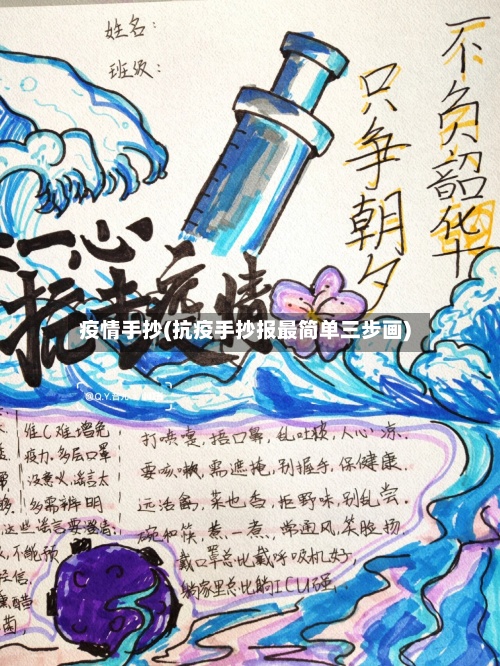 姓名：
班级：
不负韶华
只争朝夕
一心
抗击疫情
疫情手抄(抗疫手抄报最简单三步画)
维C难增免
疫力.多层口罩
没意义,谣言太
多需辨明
打喷嚏,捂口鼻,乱吐痰,人心凉.
要咳嗽,需遮掩,别握手,保健康.
远活禽,菜也香,拒野味,别乱尝.
碗和筷,煮一煮,常通风,笑脸扬.
戴口罩总比戴呼吸机好,
躺家里总比躺ICU强.